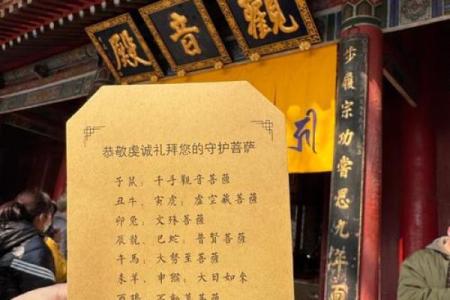 觀音殿
恭敬虔诚礼拜您的守护菩萨
子鼠：千手觀音菩薩
丑牛、寅虎：虛空藏菩薩
卯兔：文殊菩薩
辰龍、巳蛇：普賢菩薩
午馬：大勢至菩薩
未羊、申猴：大日如來
宗功嘗思九年面